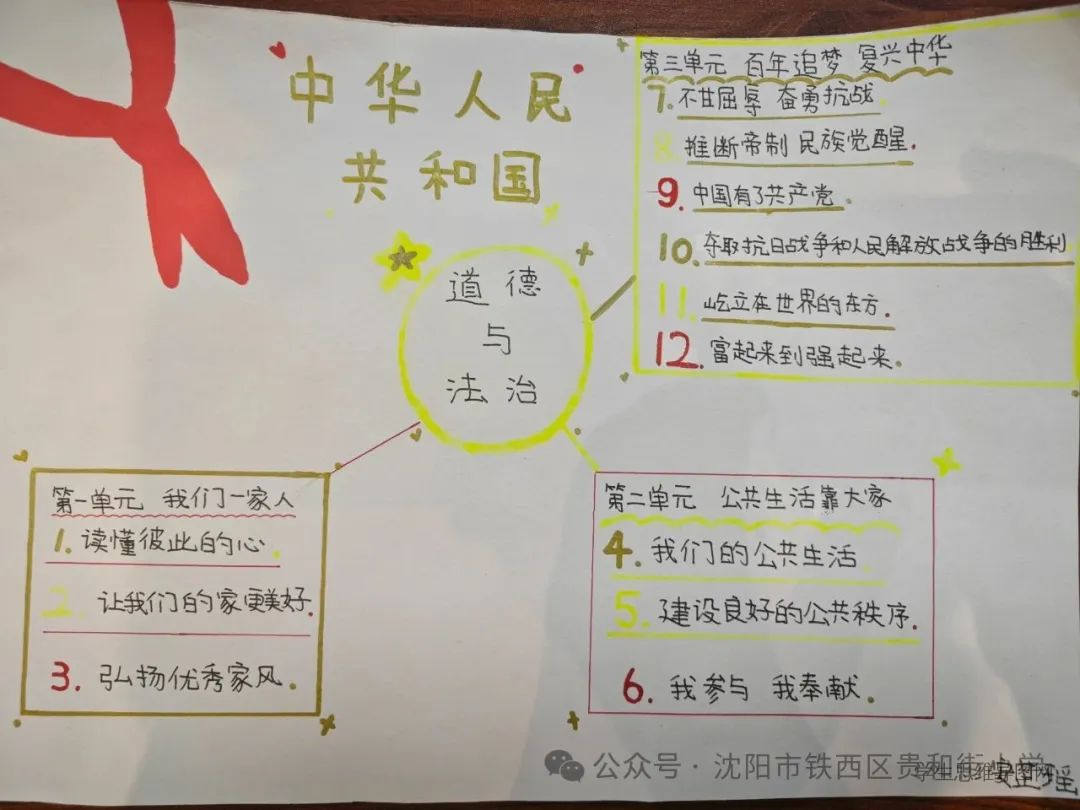 中华人民
共和国
道德
与
法治
第一单元 我们一家人
1. 读懂彼此的心.
2. 让我们的家更美好.
3. 弘扬优秀家风.
第二单元 公共生活靠大家
4. 我们的公共生活
5. 建设良好的公共秩序.
6. 我参与 我奉献.
第三单元 百年追梦 复兴中华
7. 不甘屈辱 奋勇抗战.
8. 推断帝制 民族觉醒.
9. 中国有了共产党.
10. 夺取抗日战争和人民解放战争的胜利
11. 屹立在世界的东方.
12. 富起来到强起来.
公众号·沈阳市铁西区贵和街小学